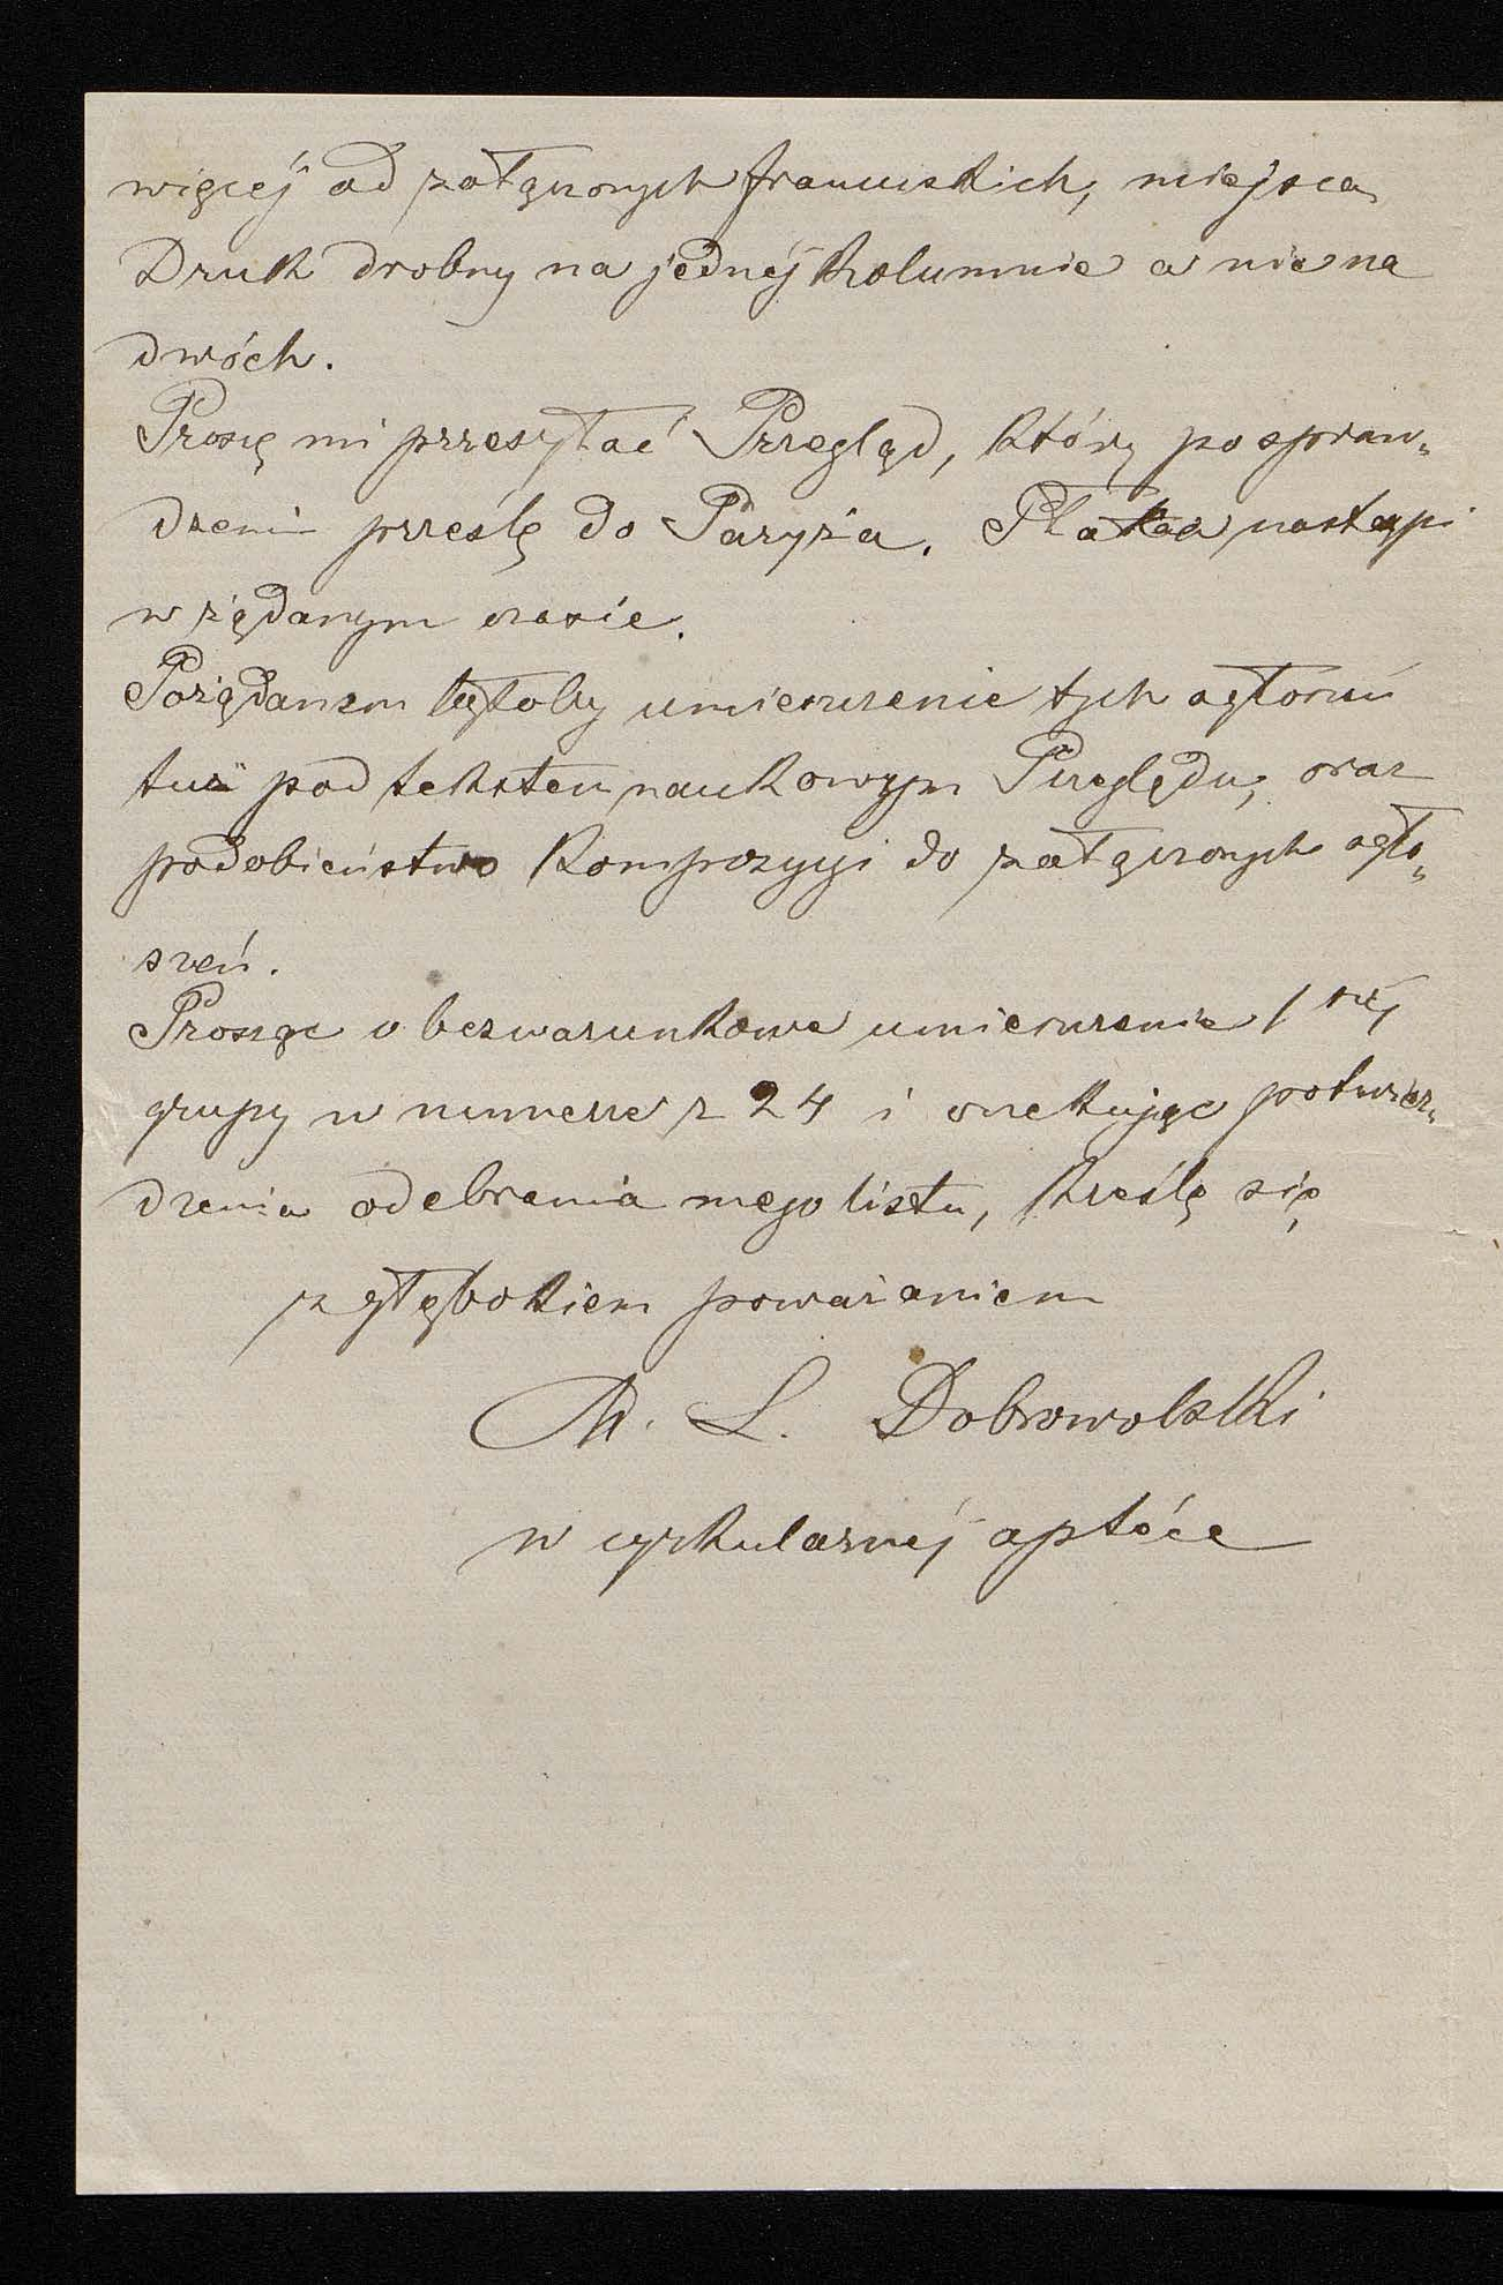 więcej od załączonych francuskich, miejsca
Druk drobny na jednéj kolumnie a nie na
dwóch.
Proszę mi przesyłać Przegląd, który po spraw„
dzeni prześlę do Paryża. Płatka nastąpi
w żądanym czasie.
Pożądanem byłoby umieszczenie tych ogłoszeń
tuż pod tekstem naukowym Przeglądu, oraz
podobieństwo kompozycyi do załączonych ogło„
szeń.
Prosząc o bezwarunkowe umieszczenie 1széj
grupy w numerze z 24 i oczekując potwier„
dzenia odebrania mego listu, kreślę się
z głębokiem poważaniem
M. L. Dobrowolski
w cyrkularnéj aptéce